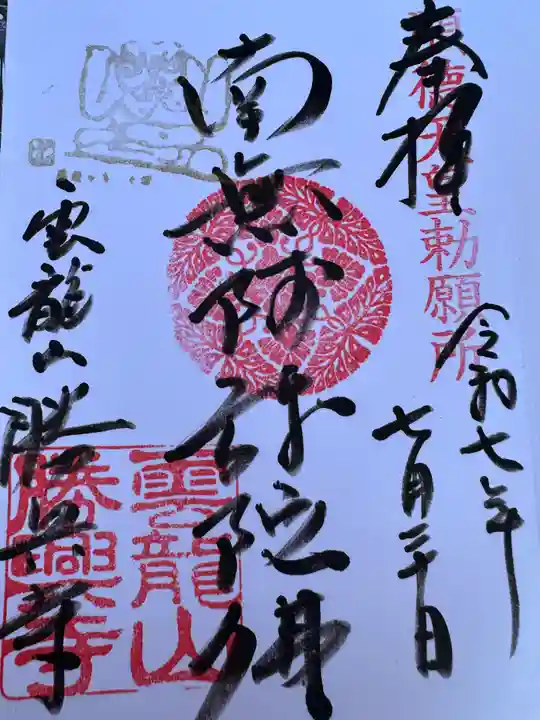 奉拝
順徳天皇勅願所
令和七年
七月三十日
南無阿弥陀佛
雲龍山
勝興寺
雲龍山
勝興寺